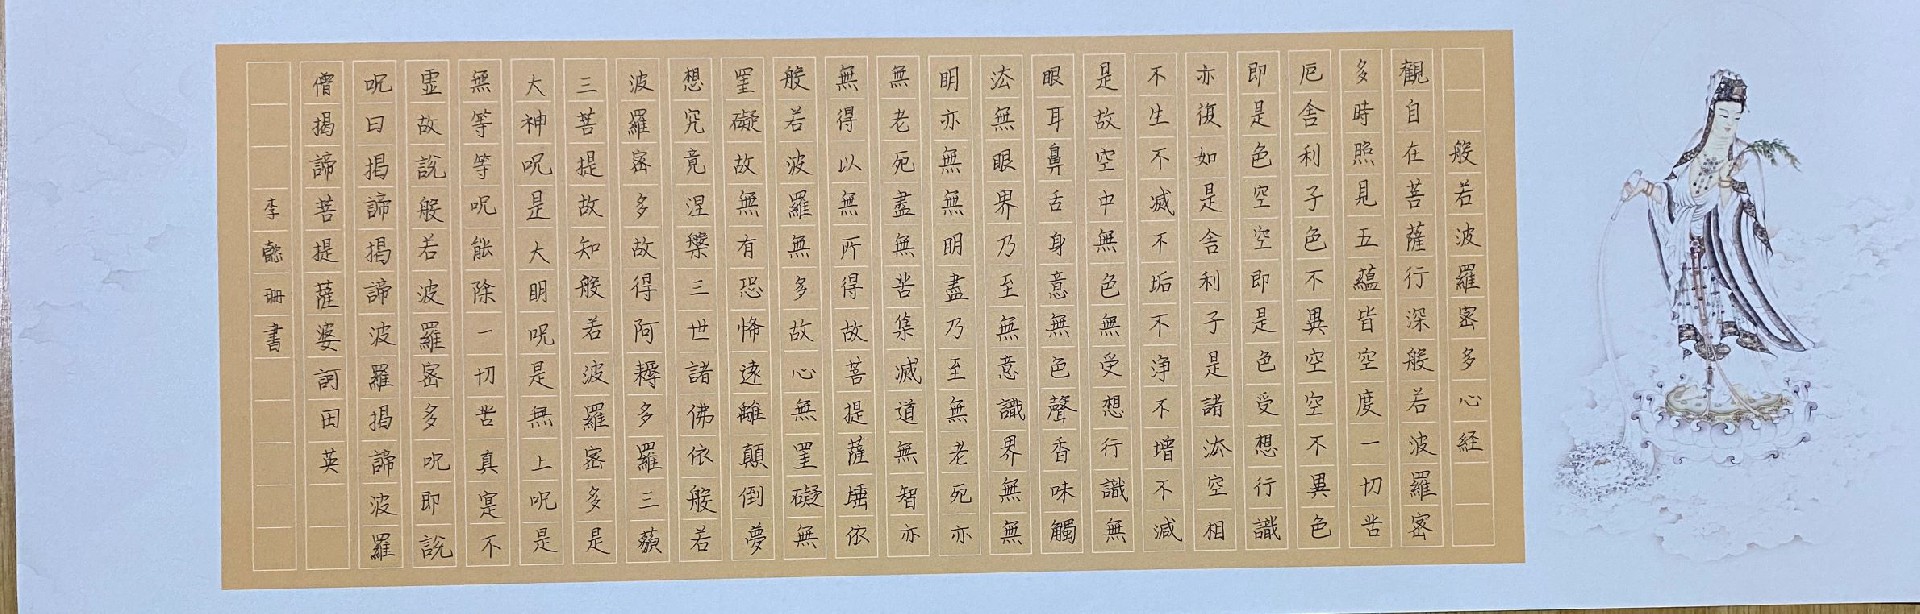 般若波羅密多心経
觀自在菩薩行深般若波羅密
多時照見五蘊皆空度一切苦
厄舍利子色不異空空不異色
即是色空空即是色受想行識
亦復如是舍利子是諸法空相
不生不滅不垢不浄不增不減
是故空中無色無受想行識無
眼耳鼻舌身意無色聲香味觸
法無眼界乃至無意識界無無
明亦無無明盡乃至無老死亦
無老死盡無苦集滅道無智亦
無得以無所得故菩提薩埵依
般若波羅無多故心無罣礙無
罣礙故無有恐怖遠離顛倒夢
想究竟涅槃三世諸佛依般若
波羅密多故得阿耨多羅三藐
三菩提故知般若波羅密多是
大神呪是大明呪是無上呪是
無等等呪能除一切苦真寔不
虛故說般若波羅密多呪即說
呪曰揭諦揭諦波羅揭諦波羅
僧揭諦菩提薩婆訶田英
李懿珊書